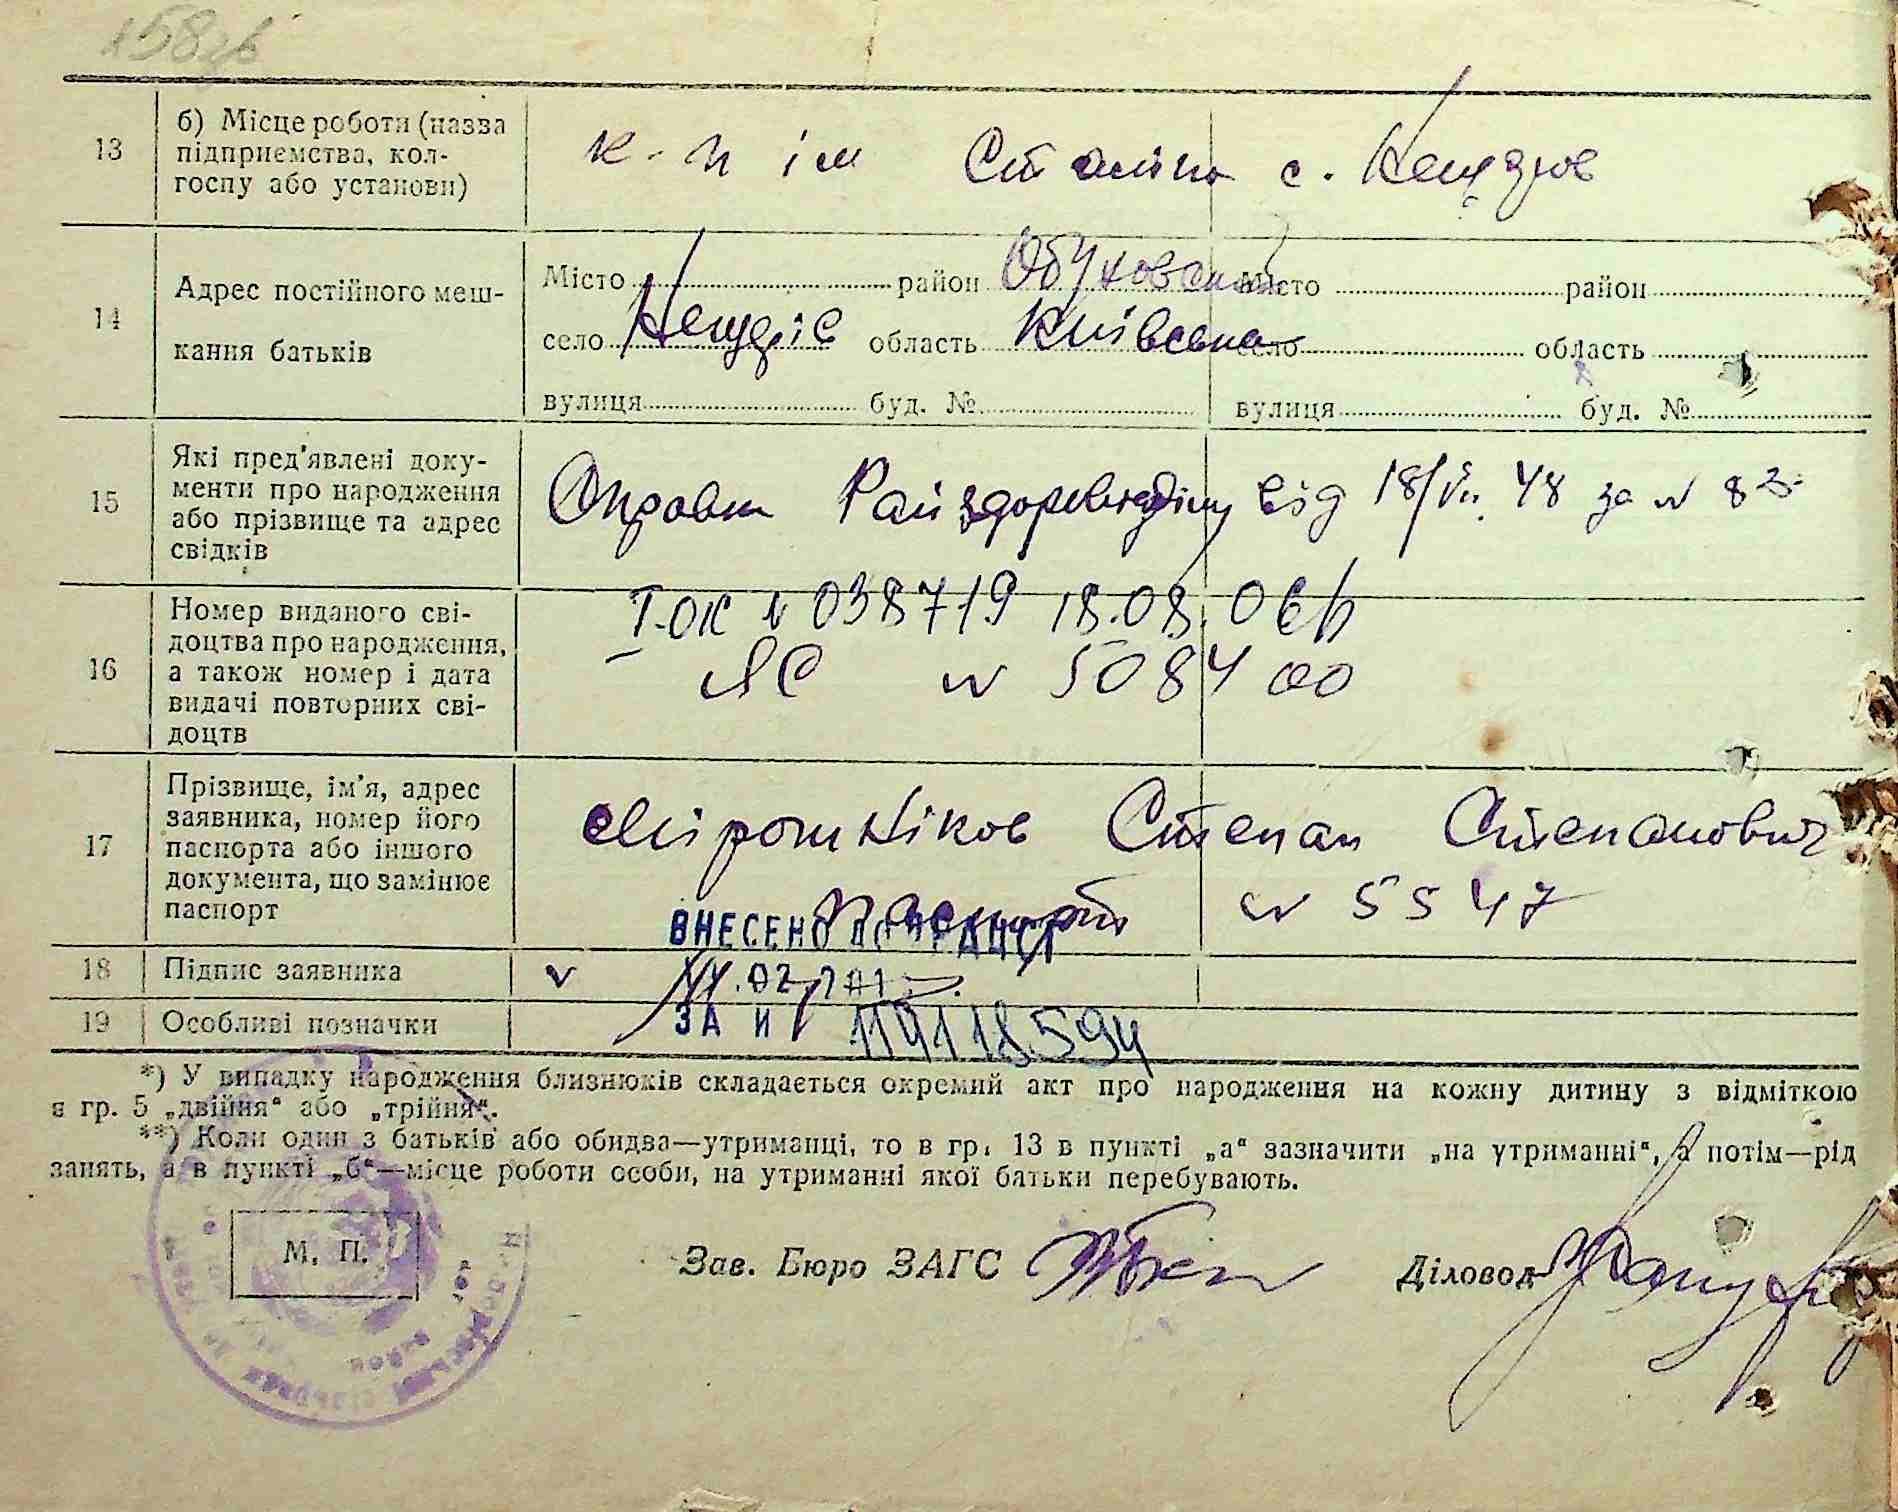 158зв
13
б) Місце роботи (назва
підприємства, кол-
госпу або установи)
к-п ім Сталіна с.
14
Адрес постійного меш-
кання батьків
Місто район Обуховський
село область Київська
вулиця буд. №
Місто район
село область
вулиця буд. №
15
Які пред'явлені доку-
менти про народження
або прізвище та адрес
свідків
Справка Райздороввідділу від 18/ 48 за №
16
Номер виданого сві-
доцтва про народження,
а також номер і дата
видачі повторних сві-
доцтв
І-ОК № 038719 18.08.06р
ЯС № 508400
17
Прізвище, ім'я, адрес
заявника, номер його
паспорта або іншого
документа, що замінює
паспорт
Мірошніков Степан Степанович
паспорт № 5547
ВНЕСЕНО ДО
18
Підпис заявника
v
19
Особливі позначки
ЗА №
*) У випадку народження близнюків складається окремий акт про народження на кожну дитину з відміткою
в гр. 5 „двійня“ або „трійня“.
**) Коли один з батьків або обидва—утриманці, то в гр. 13 в пункті „а“ зазначити „на утриманні“, а потім—рід
занять, а в пункті „б“—місце роботи особи, на утриманні якої батьки перебувають.
М. П.
Зав. Бюро ЗАГС
Діловод